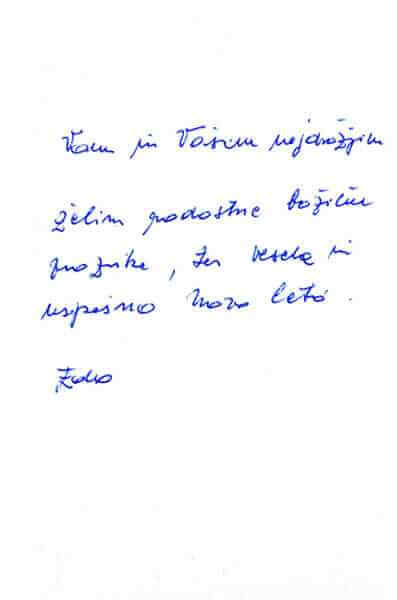 Vam in Vašim najdražjim
želim radostne božične
praznike, ter veselo in
uspešno novo leto.